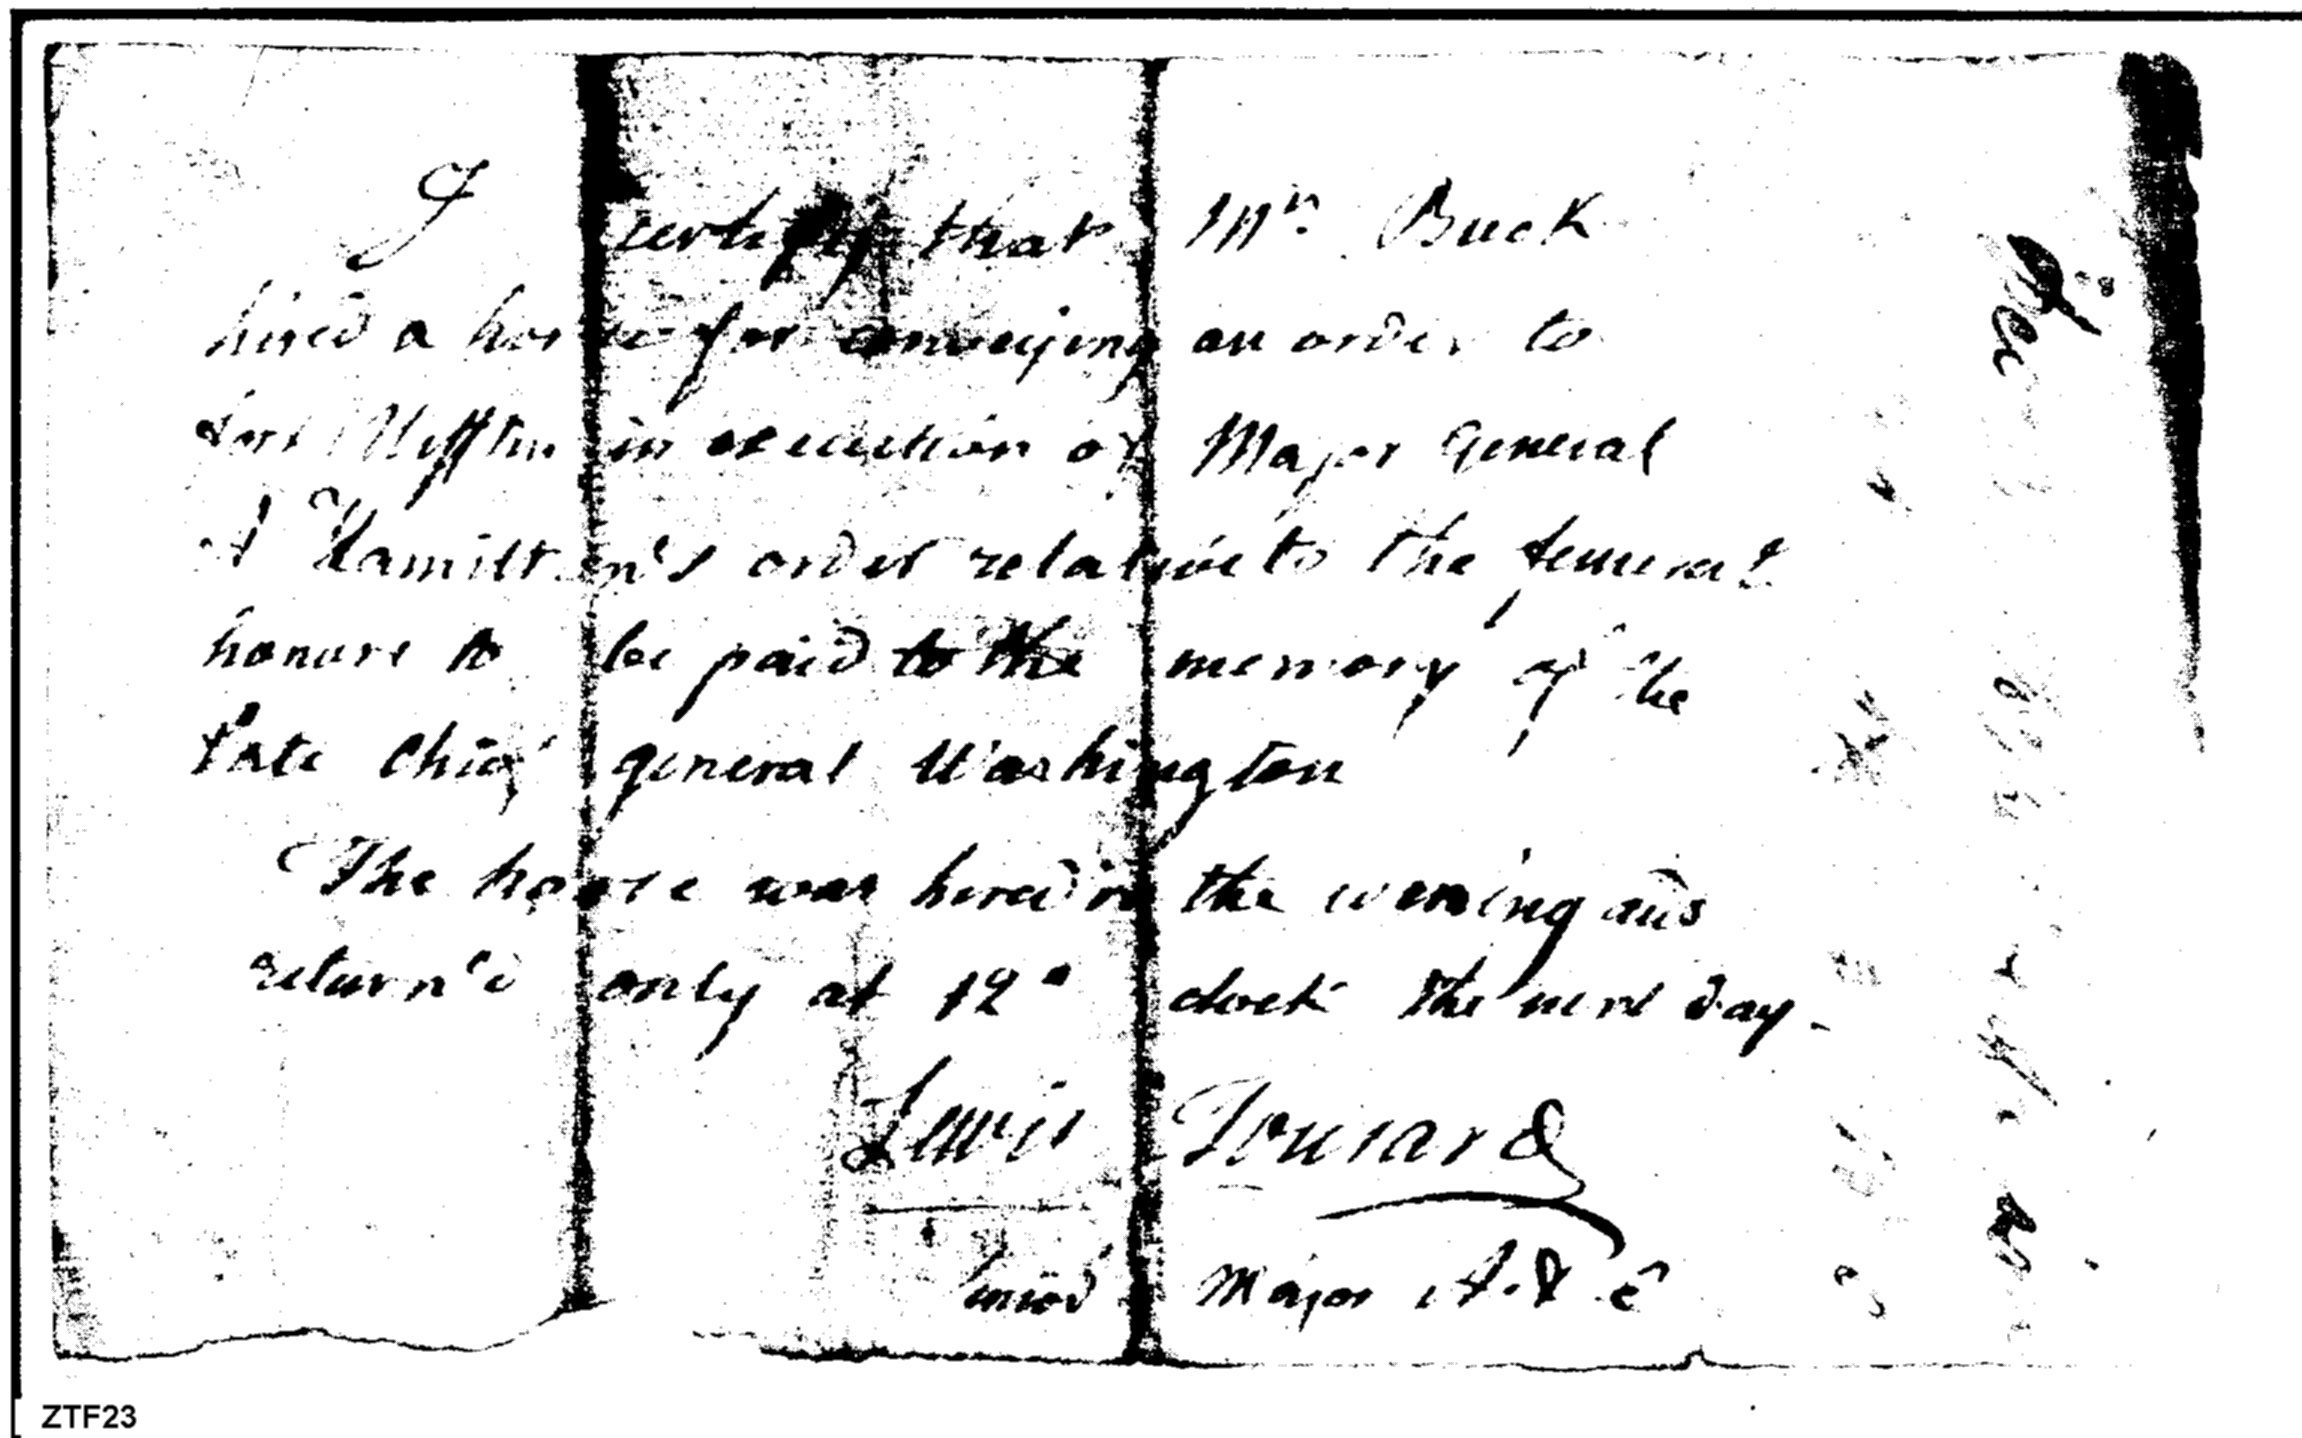 I certify that Mr. Buck
hired a horse for conveying an order to
fort Mifflin in execution of Major General
A Hamilton's order relative to the funeral
honurs to be paid to the memory of the
late Chief general Washington
The horse was hired in the evening and
return'd only at 12 o clock the next day.
Lewis Tousard
Major A. & E
ZTF23